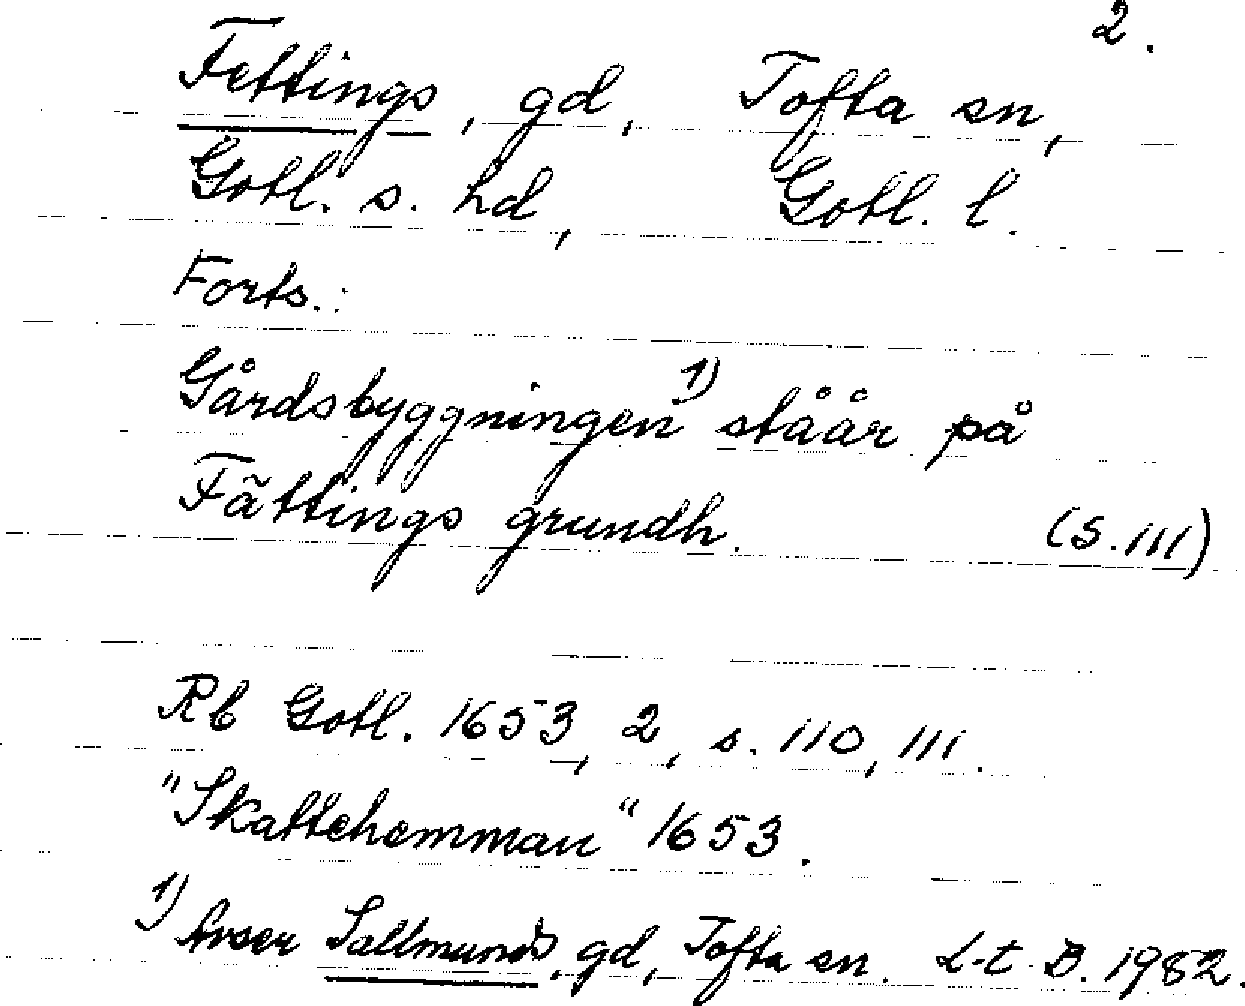 2.
Fettings, gd, Tofta sn,
Gotl. s. hd, Gotl. l.
Forts.:
Gårdsbyggningen 1) ståår på
Fãttings grundh. (S. 111)
Rb Gotl. 1653, 2, s. 110, 111.
"Skattehemman" 1653.
1) Avser Sallmunds, gd, Tofta sn. L-t B. 1982.